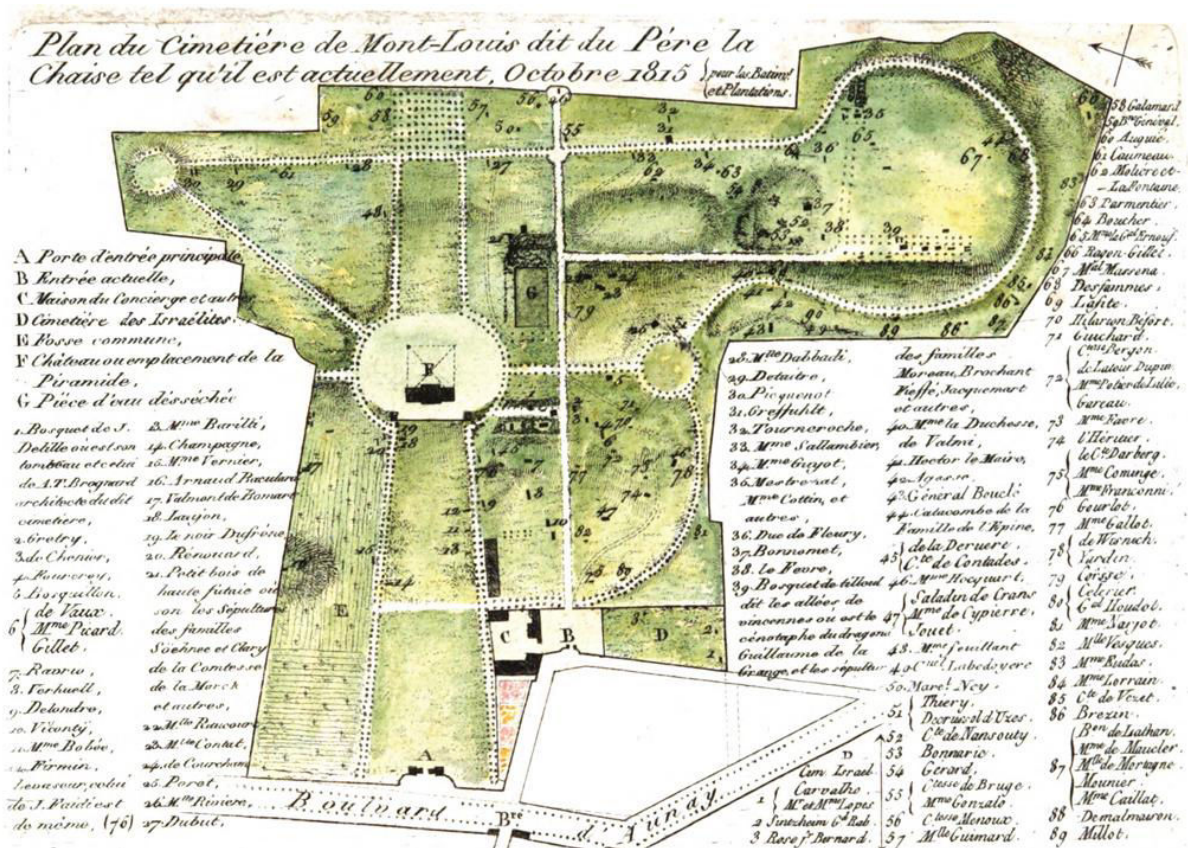 Plan du Cimetiére de Mont-Louis dit du Pére la
Chaise tel qu'il est actuellement, Octobre 1815
pour les Batimts
et Plantations.
A Porte d'entrée principale,
B Entrée actuelle,
C Maison du Concierge et autres
D Cimetière des Israélites.
E Fosse commune,
F Château ou emplacement de la
Piramide,
G Piéce d'eau désséchée
1. Bosquet de J.
Delille ou est son
tombeau et celui
de A.T. Brognard
architecte du dit
cimetiere,
2. Gretry,
3. de Chenier,
4. Fourcroy,
5. Bosquillon.
6 de Vaux.
Mme Picard.
Gillet.
7. Ravrio,
8. Verhuell,
9. Delondre,
10. Viconty,
11. Mme Bobée,
12. Firmin,
Levasseur, celui
de J. Faidi est
de même, (76)
13. Mme Barilli,
14. Champagne,
15. Mme Vernier,
16. Arnaud Baculard
17. Valmont de Bomare
18. Laujon,
19. Le noir Dufrêne,
20. Rénouard,
21. Petit bois de
haute futaie ou
son les Sépultures
des familles
Soehnee et Clary
de la Comtesse
de la Marck
et autres,
22. Mlle Raucourt
23. Mlle Contat,
24. de Courchamp
25. Porot,
26. Mlle Riviere,
27. Dubut,
28. Mlle Dabbadi,
29. Detaitre,
30. Picquenot
31. Greffuhlt,
32. Tourncroche,
33. Mme Sallambier,
34. Mme Guyot,
35. Mestrezat,
Mme Cottin, et
autres,
36. Duc de Fleury,
37. Bonnomet,
38. le Fevre,
39. Bosquet de tilleul
dit les allées de
vincennes ou est le
cénotaphe du dragon
Guillaume de la
Grange, et les sépultur
des familles
Moreau, Brochant
Fieffé, Jacquemart
et autres,
40. Mme la Duchesse,
de Valmi,
41. Hector le Maire,
42. Agasse,
43. Général Bouclé
44. Catacombe de la
Famille de l'Epine,
45 de la Deruert.
Cte de Contades.
46. Mme Hocquart,
47 Saladin de Crans
Mme de Cypierre
Jouet.
48. Mme feuillant
49. Cnel Labedoyere
50. Marcl Ney,
51 Thiery,
Decruissol d'Uzes.
52 Cte de Nansouty
53 Bonnario.
54 Gerard,
55 Ctesse de Bruge.
Mme Gonzalo
56 Ctesse Menoux.
57 Mlle Guimard.
58 Galamard
59 Bne Genéval.
60 Auguié.
61 Caumeau.
62 Molière et
La Fontaine.
63 Parmentier.
64 Boucher.
65 Mme le Gal Ernouf.
66 Ragon Gillet.
67 Mal Massena.
68 Desfammes.
69 Lafite.
70 Hilarion Béfort.
71 Guichard.
72 Ctesse Dergon
de Latour Dupin
Mme Potier de Lille,
Gareau.
73 Mme Favre.
74 l'Héritier
75 le Cte Darberg.
Mme Cominge.
Mme Franconni.
76 Gourlot.
77 Mme Gallot.
78 de Wisnich.
Yardin.
79 Corsso.
80 Celerier.
Gal Houdot.
81 Mme Narjot.
82 Mlle Vosques.
83 Mme Budas.
84 Mme Lorrain.
85 Cte de Vezet.
86 Brezin.
87 Bon de Lathan.
Mme de Maucler
Mlle de Mortagne
Mounier
Mme Caillat.
88 Demalmaison.
89 Millot.
D
Cim. Israel.
1 Carvalho
Mr et Mme Lopes
2 Sintzheim Gd Rab.
3 Rose f. Bernard.
F
G
E
C
B
D
A
Boulvard d'Aunay
Bre